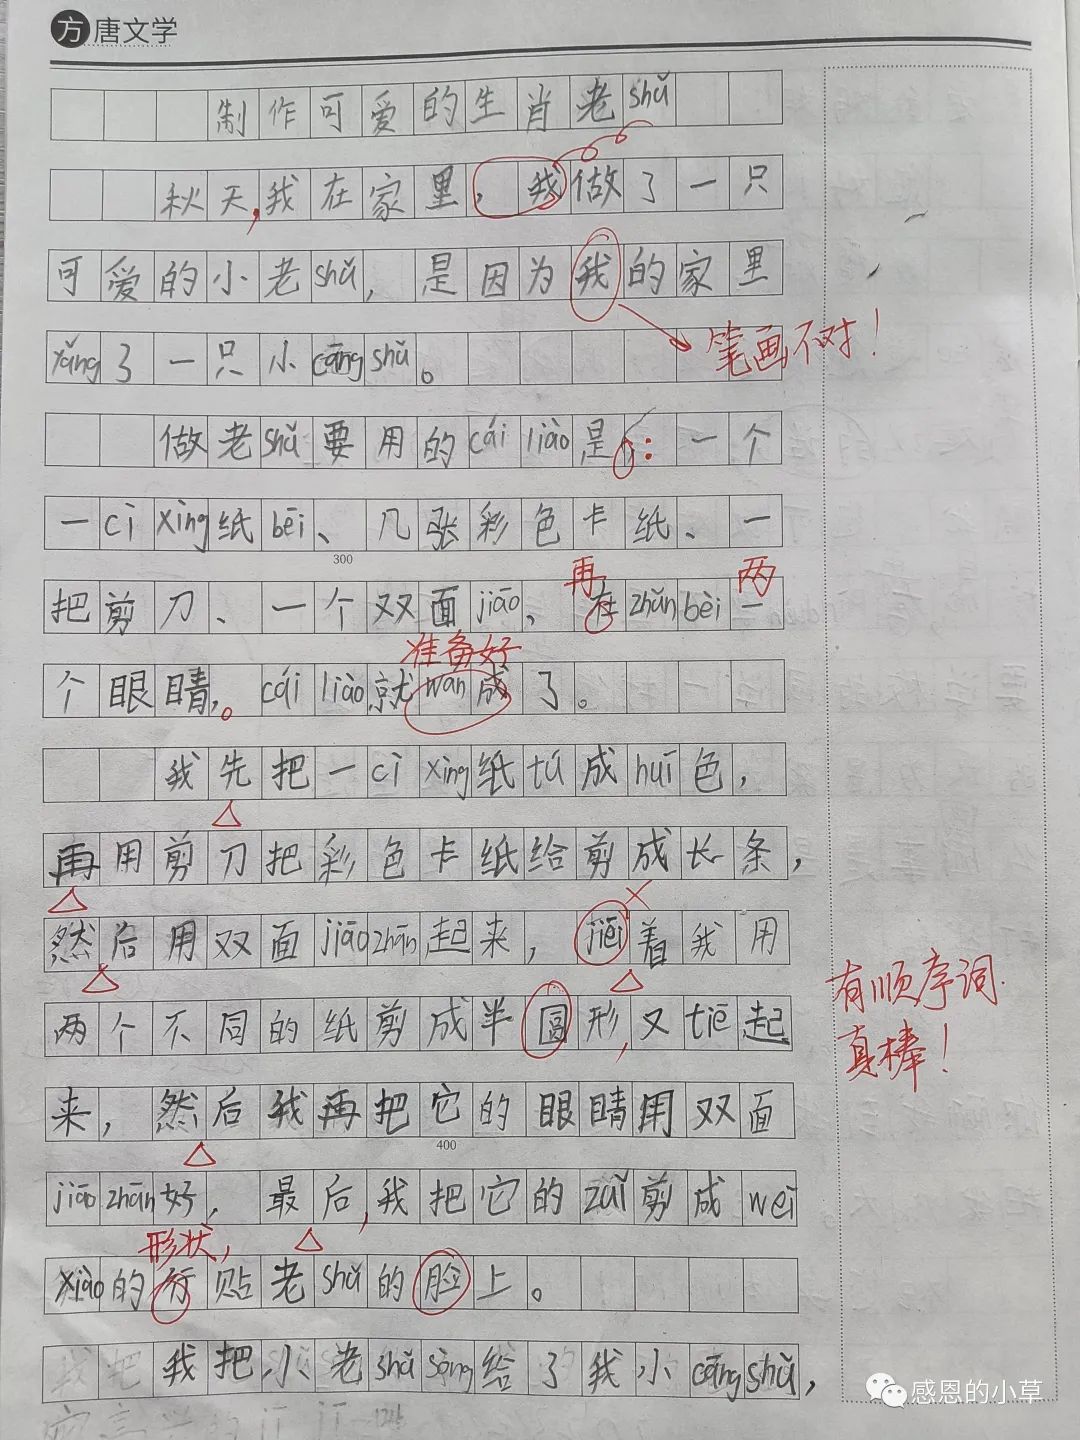 方唐文学
制作可爱的生肖老shǔ
秋天,我在家里，我做了一只
可爱的小老shǔ，是因为我的家里
笔画不对！
yǎng了一只小cāng shǔ。
做老shǔ要用的cái liào是：一个
一cì xìng纸bēi、几张彩色卡纸、一
300
再 两
把剪刀、一个双面jiāo、在zhǔn bèi一
准备好
个眼睛，。cái liào就wán成了。
我先把一cì xìng纸tú成huī色，
再用剪刀把彩色卡纸给剪成长条，
然后用双面jiāo zhān起来，jiēi着我用
有顺序词.
两个不同的纸剪成半圆形,又tiē起
真棒！
来，然后我再把它的眼睛用双面
400
jiāo zhān好，最后,我把它的zuǐ剪成wēi
形状,
xiào的行贴老shǔ的脸上。
我把我把小老shǔ sòng给了我小cāng shǔ，
感恩的小草